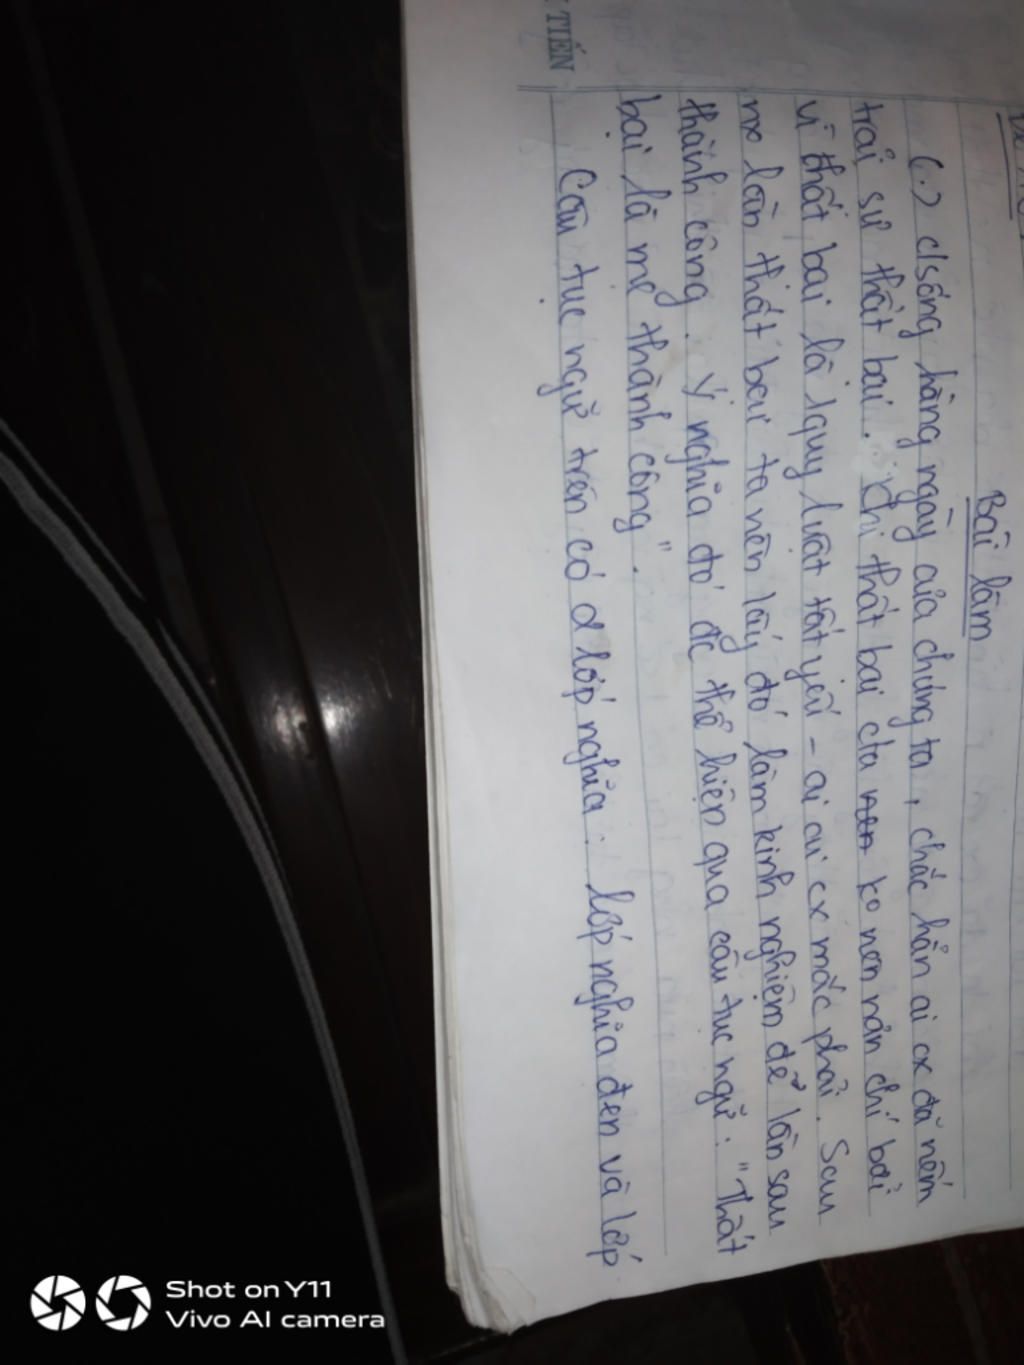 TIẾN
Bài làm
(.) c/sống hàng ngày của chúng ta, chắc hẳn ai cx đã nếm
trải sự thất bại. Khi thất bại cta ko nên nản chí bởi
vì thất bại là quy luật tất yếu - ai ai cx mắc phải. Sau
mo lần thất bại ta nên lấy đó làm kinh nghiệm để lần sau
thành công. Ý nghĩa đó đc thể hiện qua câu tục ngữ: "Thất
bại là mẹ thành công".
Câu tục ngữ trên có 2 lớp nghĩa: lớp nghĩa đen và lớp
Shot on Y11
Vivo AI camera